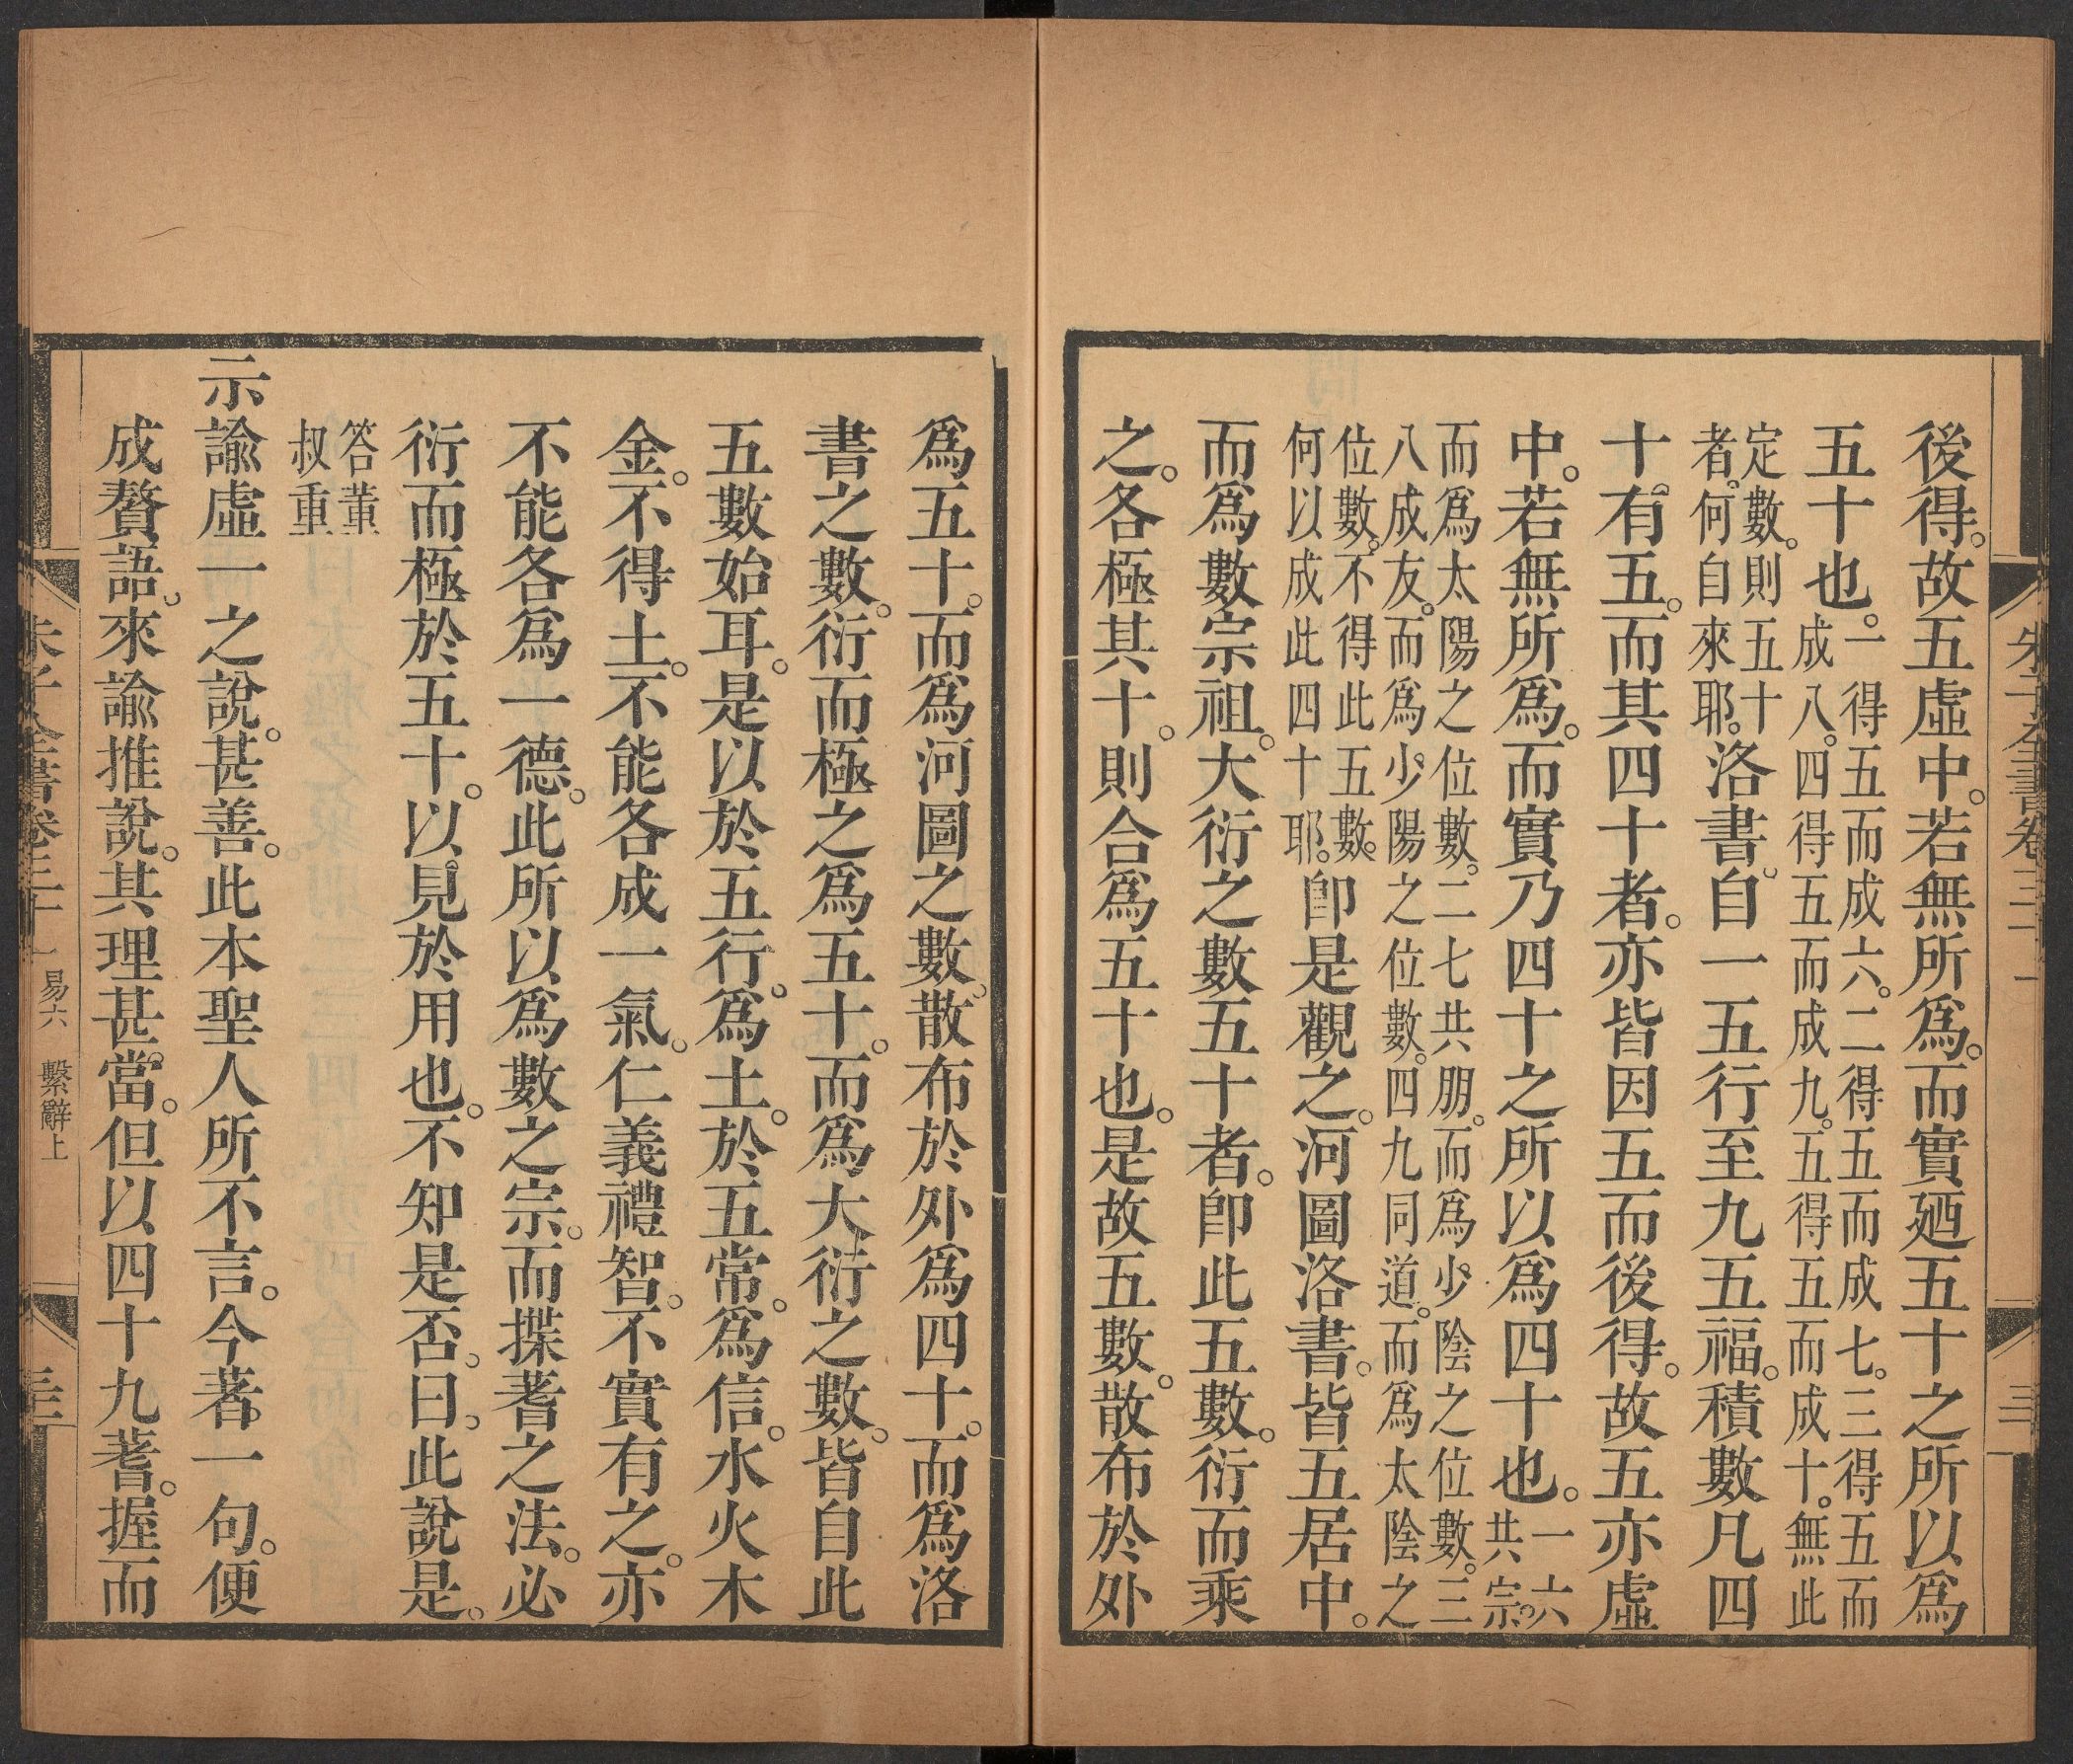 朱子全書卷三十一 三
後得。故五虛中。若無所爲。而實廼五十之所以爲
五十也。一得五而成六。二得五而成七。三得五而
成八。四得五而成九。五得五而成十。無此
定數。則五十
者。何自來耶。洛書。自一五行至九五福。積數凡四
十有五。而其四十者。亦皆因五而後得。故五亦虛
中。若無所爲。而實乃四十之所以爲四十也。一六
共宗。
而爲太陽之位數。二七共朋。而爲少陰之位數。三
八成友。而爲少陽之位數。四九同道。而爲太陰之
位數。不得此五數。
何以成此四十耶。卽是觀之。河圖洛書。皆五居中。
而爲數宗祖。大衍之數五十者。卽此五數。衍而乘
之。各極其十。則合爲五十也。是故五數。散布於外
爲五十。而爲河圖之數。散布於外爲四十。而爲洛
書之數。衍而極之爲五十。而爲大衍之數。皆自此
五數始耳。是以於五行。爲土。於五常。爲信。水火木
金。不得土。不能各成一氣。仁義禮智。不實有之。亦
不能各爲一德。此所以爲數之宗。而揲蓍之法。必
衍而極於五十。以見於用也。不知是否。曰。此說是。
答董
叔重
示諭虛一之說。甚善。此本聖人所不言。今著一句。便
成贅語。來諭推說。其理甚當。但以四十九蓍。握而
朱子全書卷三十一 易六 繫辭上 三